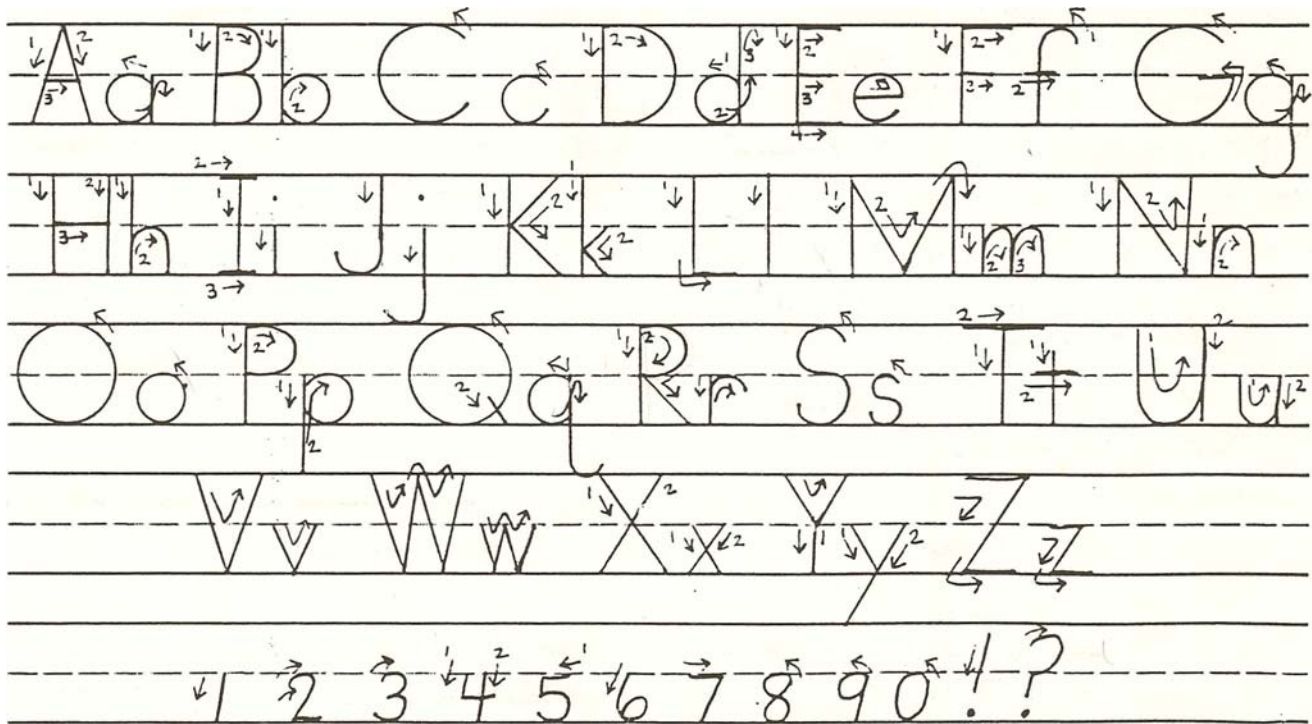 A a B b C c D d E e F f G g
H h I i J j K k L l M m N n
O o P p Q q R r S s T t U u
V v W w X x Y y Z z
1 2 3 4 5 6 7 8 9 0 ! ?